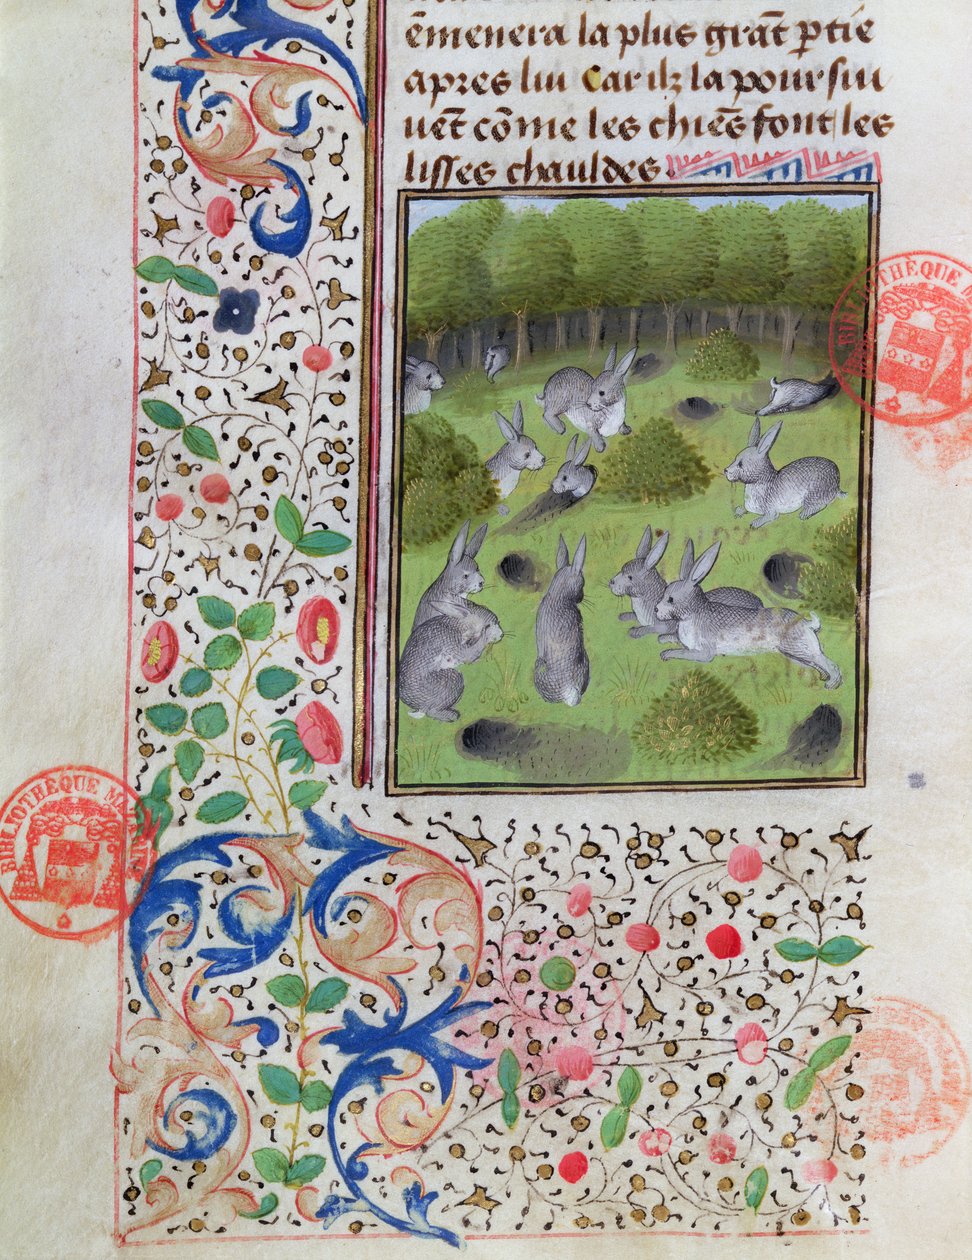 ēmenera la plus grāt ꝑtie
apres lui Car ilz la poursiu
uēt cōme les chiēs font les
lisses chauldes
BIBLIOTHÈQUE
BIBLIOTHÈQUE MA